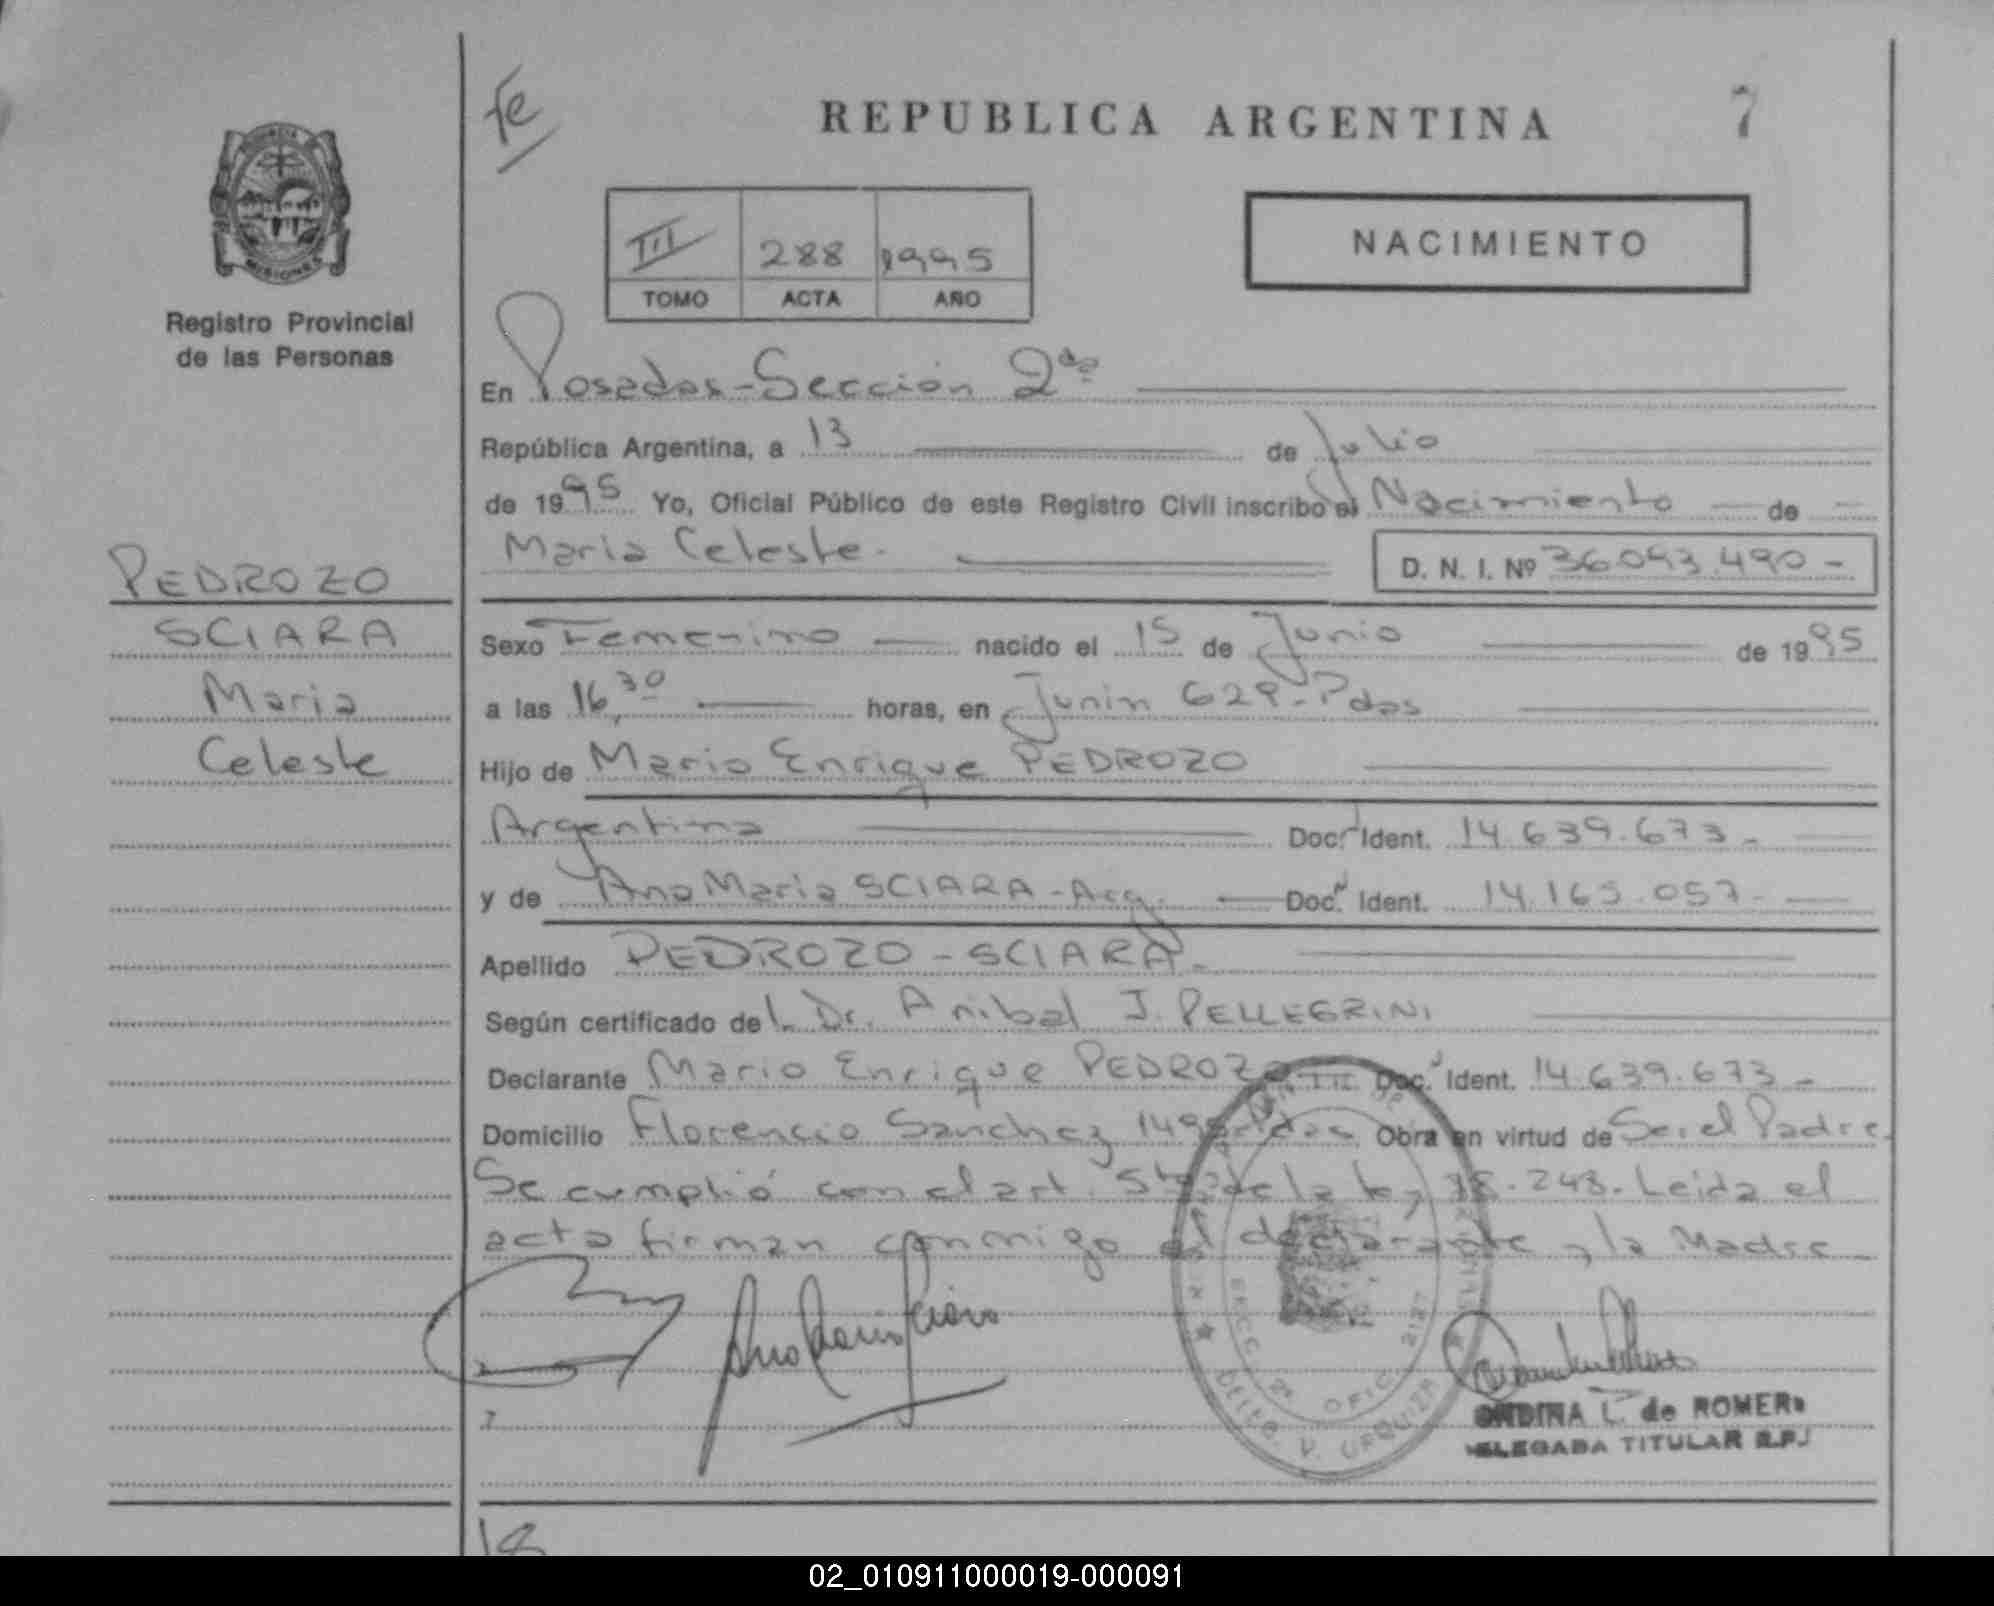 fe
REPUBLICA ARGENTINA
7
MISIONES
Registro Provincial
de las Personas
III 288 1995
TOMO ACTA AÑO
NACIMIENTO
En Posadas-Sección 2da
República Argentina, a 13 de Julio
de 1995 Yo, Oficial Público de este Registro Civil inscribo el Nacimiento de
Maria Celeste. D. N. I. Nº 36.093.490-
PEDROZO
SCIARA
Maria
Celeste
Sexo Femenino nacido el 15 de Junio de 1995
a las 16,30 horas, en Junin 629-Pdas
Hijo de Mario Enrique PEDROZO
Argentina Doc. Ident. 14.639.673-
y de Ana Maria SCIARA-Arg. Doc. Ident. 14.165.057-
Apellido PEDROZO-SCIARA-
Según certificado del Dr. Anibal J. PELLEGRINI
Declarante Mario Enrique PEDROZO Doc. Ident. 14.639.673-
Domicilio Florencio Sanchez Pdas Obra en virtud de Ser el Padre.
Se cumplió con el art. 5to de la ley 18.248. Leida el
acta firman conmigo el declarante y la Madre
Ana Maria Sciara
SECC. 2ª OFIC. 2127
Delto. V. URQUIZA
ONDINA L. de ROMERO
DELEGADA TITULAR R.P.
18
02_010911000019-000091